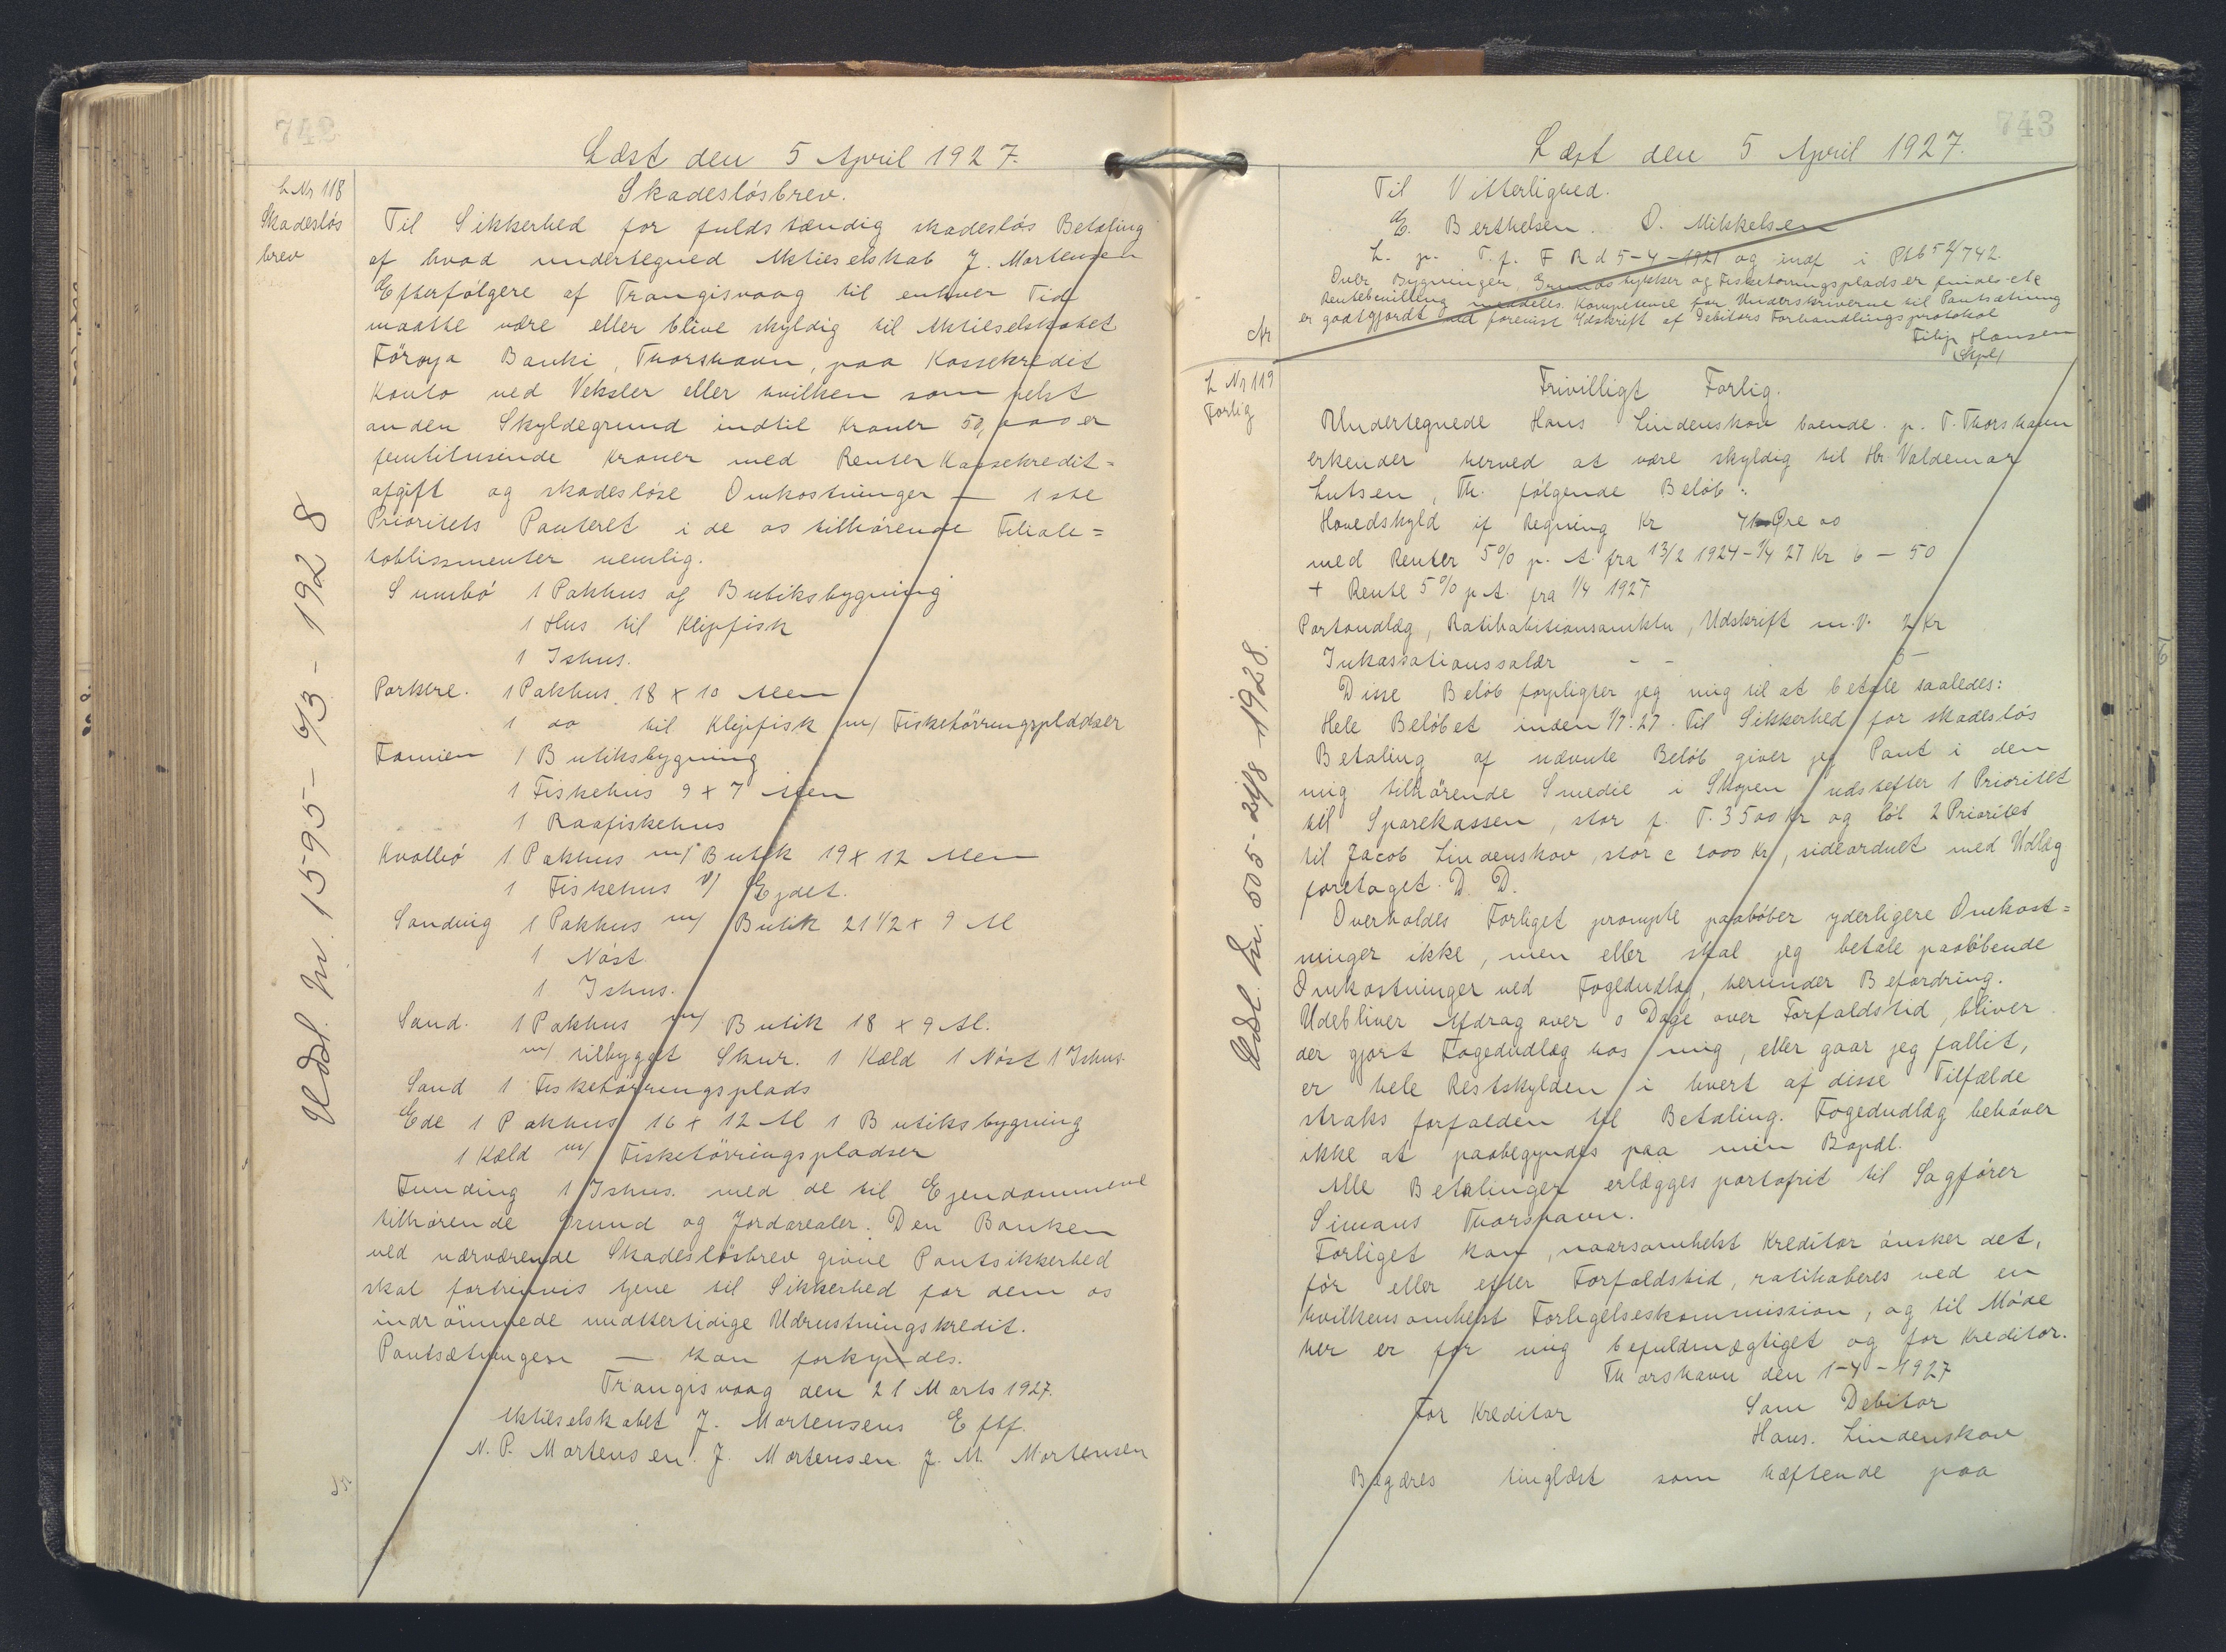 742
Læst den 5 April 1927.
L Nr 118
Skadesløs
brev
Skadesløsbrev.
Til Sikkerhed for fuldstændig skadesløs Betaling
af hvad undertegned Aktieselskab J. Mortensen
Efterfølgere af Trangisvaag til enhver Tid
maatte være eller blive skyldig til Aktieselskabet
Föroya Banki, Thorshavn, paa Kassekredit
Konto ved Veksler eller hvilken som helst
anden Skyldegrund indtil Kroner 50,000 er
femtitusinde Kroner med Renter Kassekredit=
afgift og skadesløse Omkostninger — 1ste
Prioritets Panteret i de os tilhørende Filiale=
tablissmenter nemlig.
Sumbø 1 Pakhus og Butiksbygning
1 Hus til Klipfisk
1 Ishus.
Porkere. 1 Pakhus 18 x 10 Alen
1 do til Klipfisk m/ Fisketörringspladser
Famien 1 Butiksbygning
1 Fiskehus 9 x 7 Alen
1 Raafiskehus
Kvalbø 1 Pakhus m/ Butik 19 x 12 Alen
1 Fiskehus v/ Ejdet.
Sandvig 1 Pakhus m/ Butik 21 1/2 x 9 Al
1 Nøst
1 Ishus.
Sand. 1 Pakhus m/ Butik 18 x 9 Al.
m/ tilbygget Skur. 1 Kæld 1 Nøst 1 Ishus.
Sand 1 Fisketörringsplads
Ede 1 Pakhus 16 x 12 Al 1 Butiksbygning
1 Kæld m/ Fisketörringspladser
Funding 1 Ishus. med de til Ejendommene
tilhørende Grund og Jordarealer. Den Banken
ved nærværende Skadesløsbrev givne Pantsikkerhed
skal fortrinvis tjene til Sikkerhed for dem os
indrømmede midlertidige Udrustningskredit.
Pantsætningen — kan forkyndes.
Trangisvaag den 21 Marts 1927.
Aktieselskabet J. Mortensens Eftf.
N. P. Mortensen. J. Mortensen J. M. Mortensen
Udsl. Nr. 1595 - 6/3 - 1928
743
Læst den 5 April 1927.
Til Vitterlighed.
E. Berthelsen. O. Mikkelsen
L. p. T. f. F R d 5-4-1927 og indf i Ptb 5 2/742.
Over Bygninger, Grundstykker og Fisketørringspladser findes ele
Rentebevilling meddeles. Kompetence for Underskriverne til Pantsætning
er godtgjordt ved forevist Udskrift af Debitors Forhandlingsprotokol
Filip Hansen
L Nr 119
Forlig
Frivilligt Forlig.
Undertegnede Hans Lindenskov boende p. T. Thorshavn
erkender herved at være skyldig til Hr. Valdemar
Lutzen, Th. følgende Beløb:
Hovedskyld if Regning Kr Øre 00
med Renter 5% p. A. fra 13/2 1924 - 1/4 27 Kr 6 - 50
+ Rente 5% p. A. fra 1/4 1927
Portoudlæg, Ratihabitionsamktn, Udskrift m.V. 2 Kr
Inkassationssalær - - 5 -
Disse Beløb forpligter jeg mig til at betale saaledes:
Hele Beløbet inden 1/7.27. Til Sikkerhed for skadesløs
Betaling af nævnte Beløb giver jeg Pant i den
mig tilhørende Smedie i Skopen næstefter 1 Prioritet
til Sparekassen, stor p. T. 3500 Kr og til 2 Prioritet
til Jacob Lindenskov, stor c 2000 Kr, sideordnet med Udlæg
foretaget D. D.
Overholdes Forliget prompte paaløber yderligere Omkost=
ninger ikke, men eller skal jeg betale paaløbende
Omkostninger ved Fogedudlæg, herunder Befordring.
Udebliver Afdrag over 0 Dage over Forfaldstid, bliver
der gjort Fogedudlæg hos mig, eller gaar jeg fallit,
er hele Restskylden i hvert af disse Tilfælde
straks forfalden til Betaling. Fogedudlæg behøver
ikke at paabegyndes paa min Bopæl.
Alle Betalinger erlægges portofrit til Sagfører
Simans Thorshavn.
Forliget kan, naarsomhelst Kreditor ønsker det,
før eller efter Forfaldstid, ratihaberes ved en
hvilkensomhelst Forligelseskommission, og til Møde
her er for mig befuldmægtiget og for Kreditor.
Thorshavn den 1-4-1927
For Kreditor Som Debitor
Hans. Lindenskov
Begæres tinglæst som hæftende paa
Udsl. Nr. 505 - 24/8 - 1928.